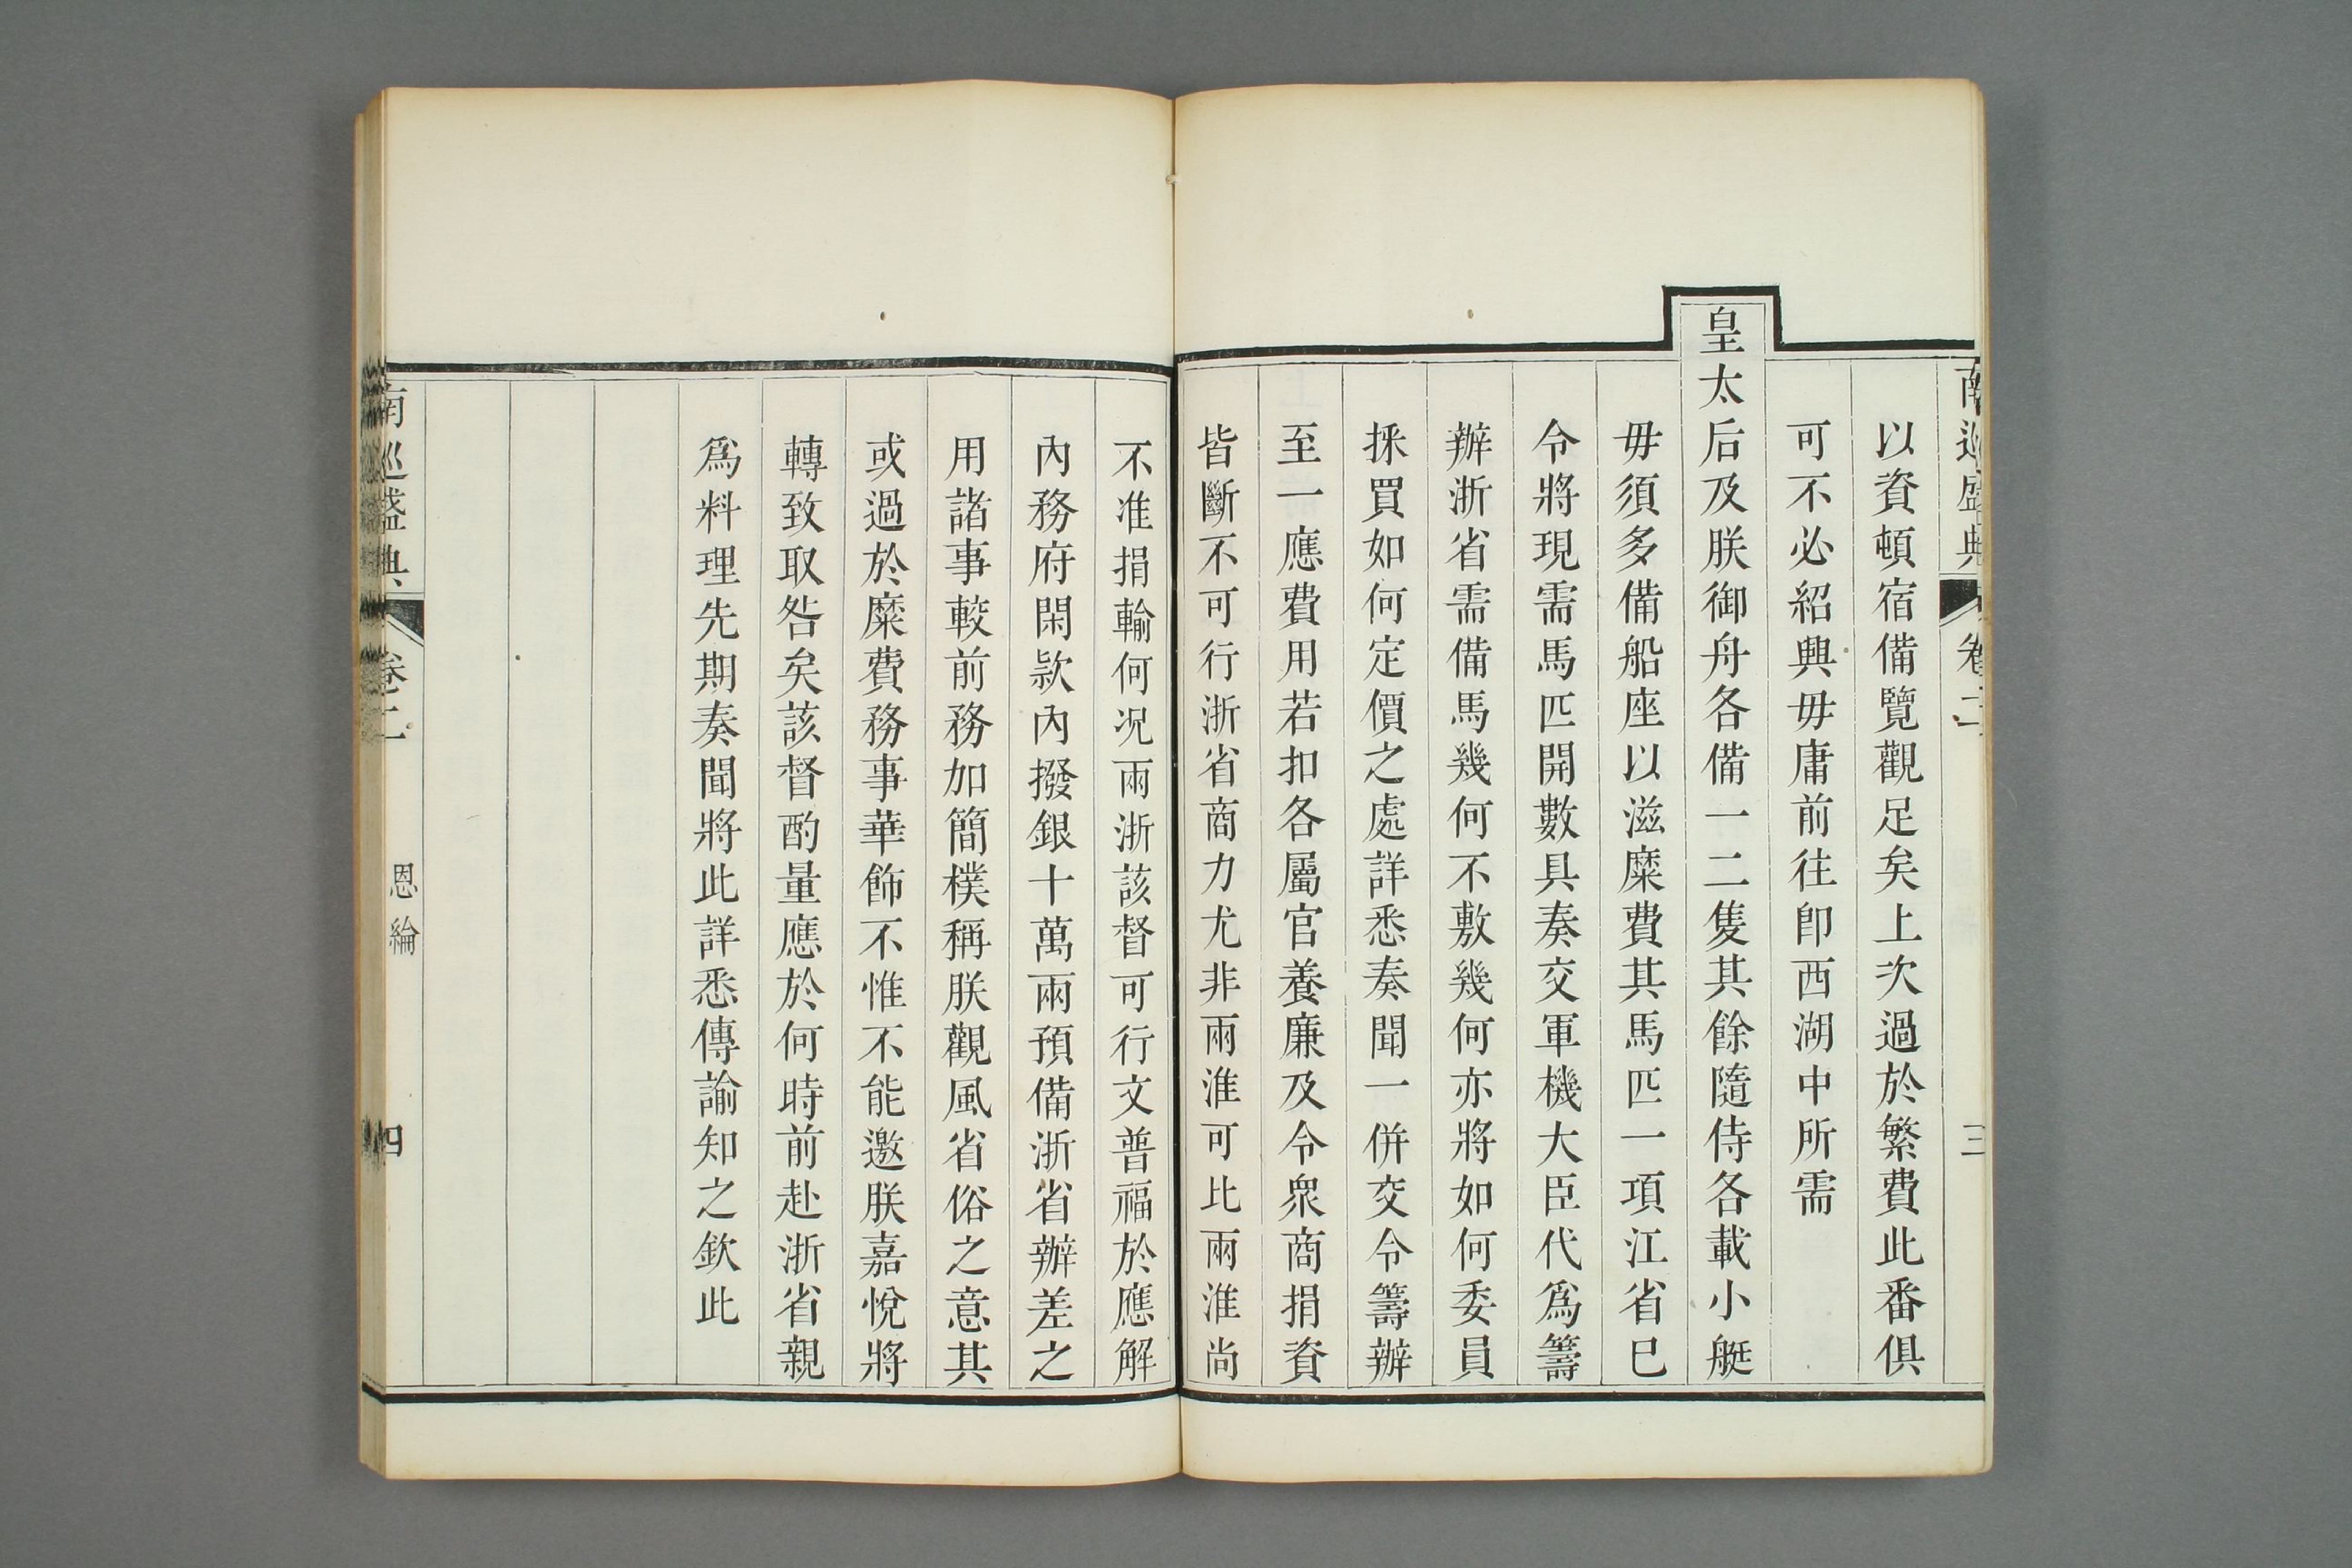 南巡盛典
卷二
三
以資頓宿備覽觀足矣上次過於繁費此番俱
可不必紹興毋庸前往卽西湖中所需
皇太后及朕御舟各備一二隻其餘隨侍各載小艇
毋須多備船座以滋糜費其馬匹一項江省巳
令將現需馬匹開數具奏交軍機大臣代爲籌
辦浙省需備馬幾何不敷幾何亦將如何委員
採買如何定價之處詳悉奏聞一併交令籌辦
至一應費用若扣各屬官養廉及令衆商捐資
皆斷不可行浙省商力尤非兩淮可比兩淮尚
不准捐輸何况兩浙該督可行文普福於應解
內務府閑欵內撥銀十萬兩預備浙省辦差之
用諸事較前務加簡樸稱朕觀風省俗之意其
或過於糜費務事華飾不惟不能邀朕嘉悅將
轉致取咎矣該督酌量應於何時前赴浙省親
爲料理先期奏聞將此詳悉傳諭知之欽此
南巡盛典
卷二
恩綸
四